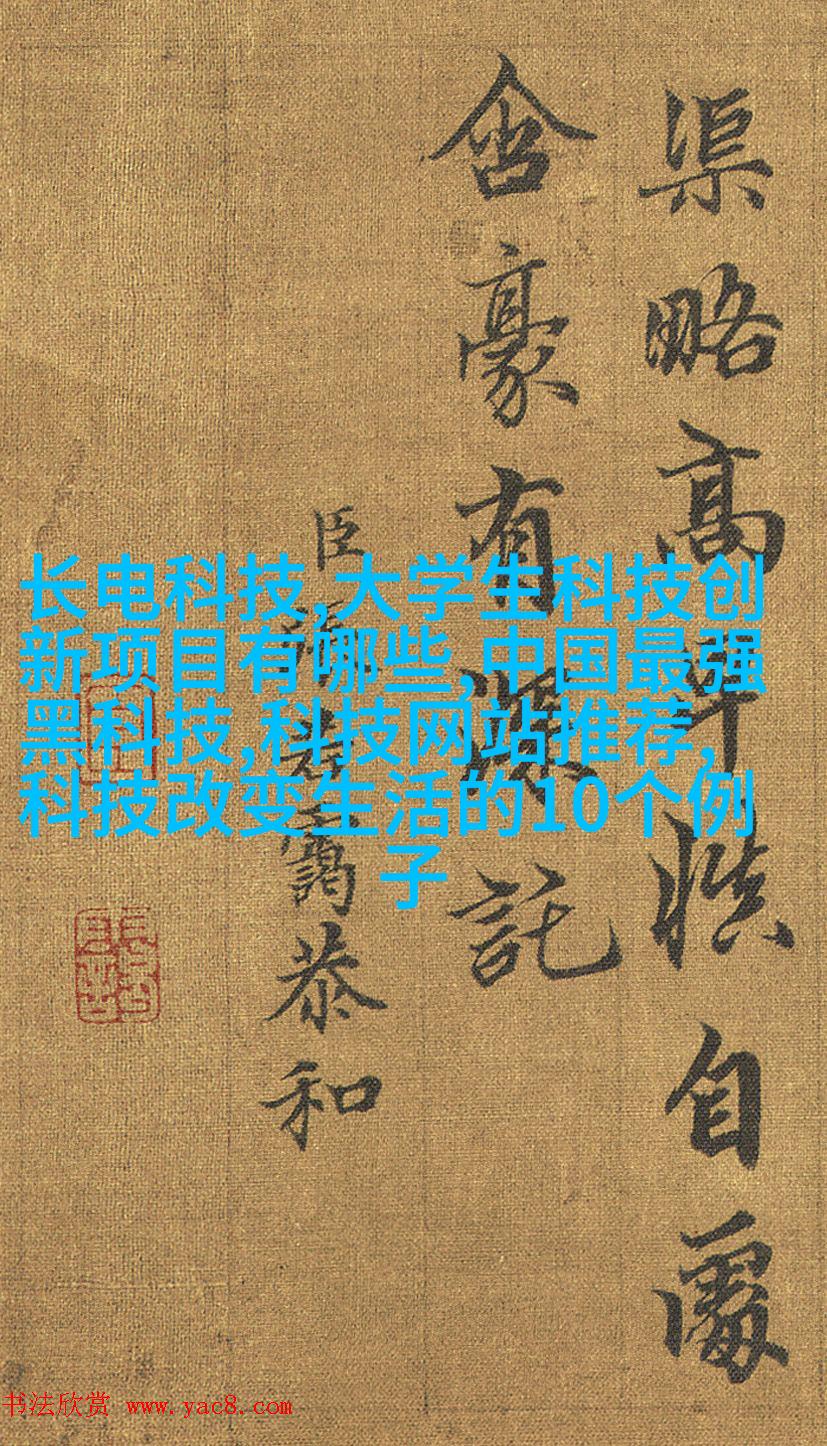 渠略高慎自處
含豪有託
臣張若靄恭和
长电科技,大学生科技创
新项目有哪些,中国最强
黑科技,科技网站推荐,
科技改变生活的10个例
子
书法欣赏 www.yac8.com